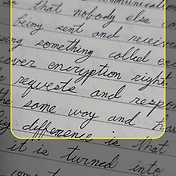 that nobody else
being sent and receive
ng something called en
over encryption right
requests and respo
same way and t
difference is that
it is turned into